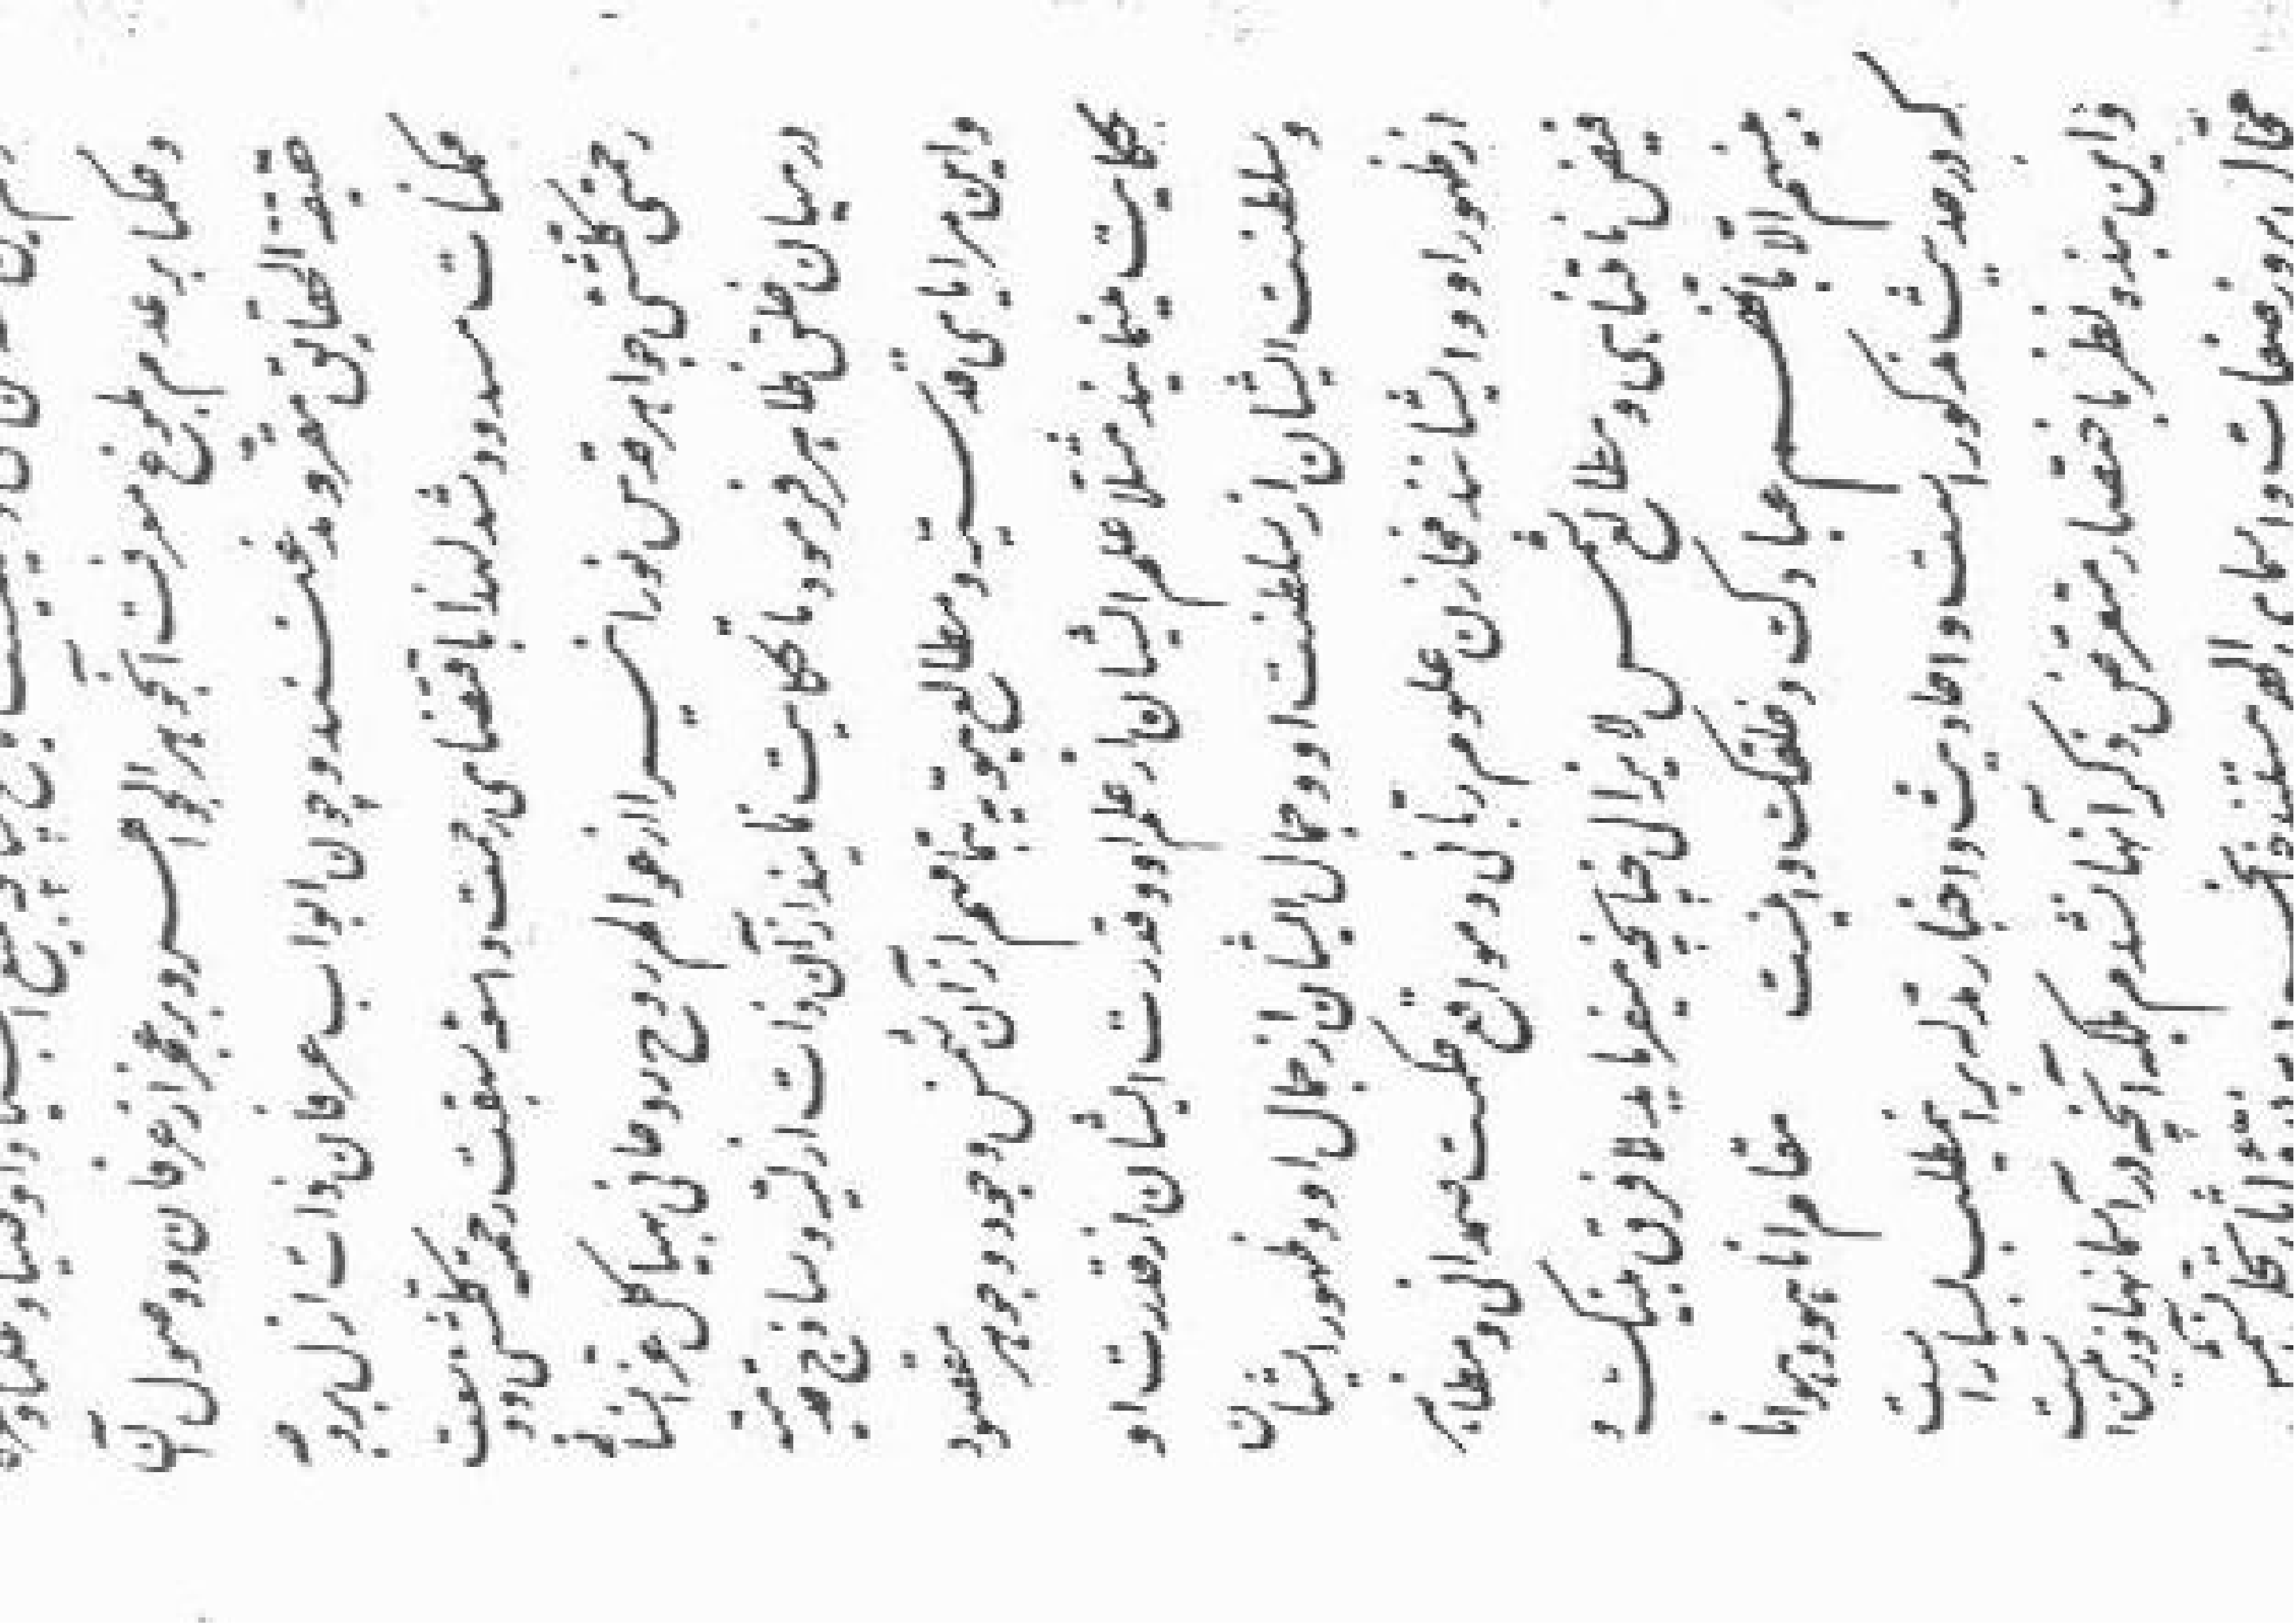 و حکما بر عدم بلوغ معرفت آن جوهر الجواهر و بر عجز از عرفان و وصول آن
حقیقة الحقایق مقر و مذعنند و چون ابواب عرفان ذات ازل بر وجه
ممکنات مسدود شد لهذا باقتضای رحمت واسعه سبقت رحمته کلشئ و وسعت
رحمتی کلشئ جواهر قدس نورانی را از عوالم روح روحانی بهیاکل عز انسانی
در میان خلق ظاهر فرمود تا حکایت نمایند از آن ذات ازلیه و ساذج قدمیه
و این مرایای قدسیه و مطالع هویه بتمامهم از آن شمس وجود و جوهر مقصود
حکایت مینمایند مثلا علم ایشان از علم او و قدرت ایشان از قدرت او
و سلطنت ایشان از سلطنت او و جمال ایشان از جمال او و ظهور ایشان
از ظهور او و ایشانند مخازن علوم ربانی و مواقع حکمت صمدانی و مظاهر
فیض نامتناهی و مطالع شمس لایزالی چنانچه میفرماید لا فرق بینک و
بینهم الا بانهم عبادک و خلقک و اینست مقام انا هو و هو انا
که در حدیث مذکور است و احادیث و اخبار مدله بر این مطلب بسیار است
و این بنده نظر باختصار متعرض ذکر آنها نشدم بلکه آنچه در آسمانها و زمین است
محال بروز صفات و اسمای الهی هستند